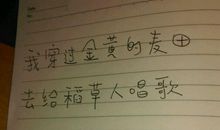 我穿过金黄的麦田
去给稻草人唱歌